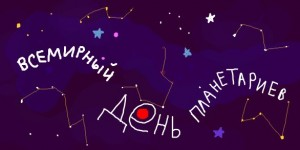 ВСЕМИРНЫЙ
ДЕНЬ
ПЛАНЕТАРИЕВ